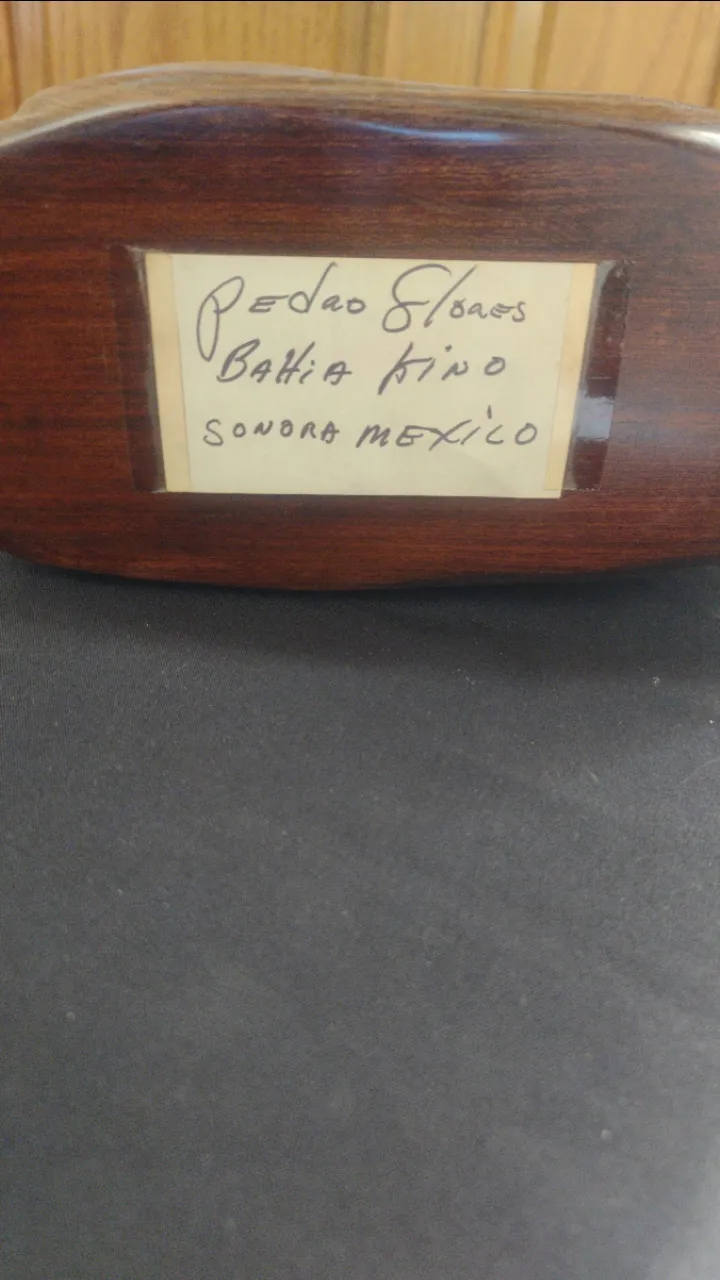 Pedro Flores
BAHIA KINO
SONORA MEXICO